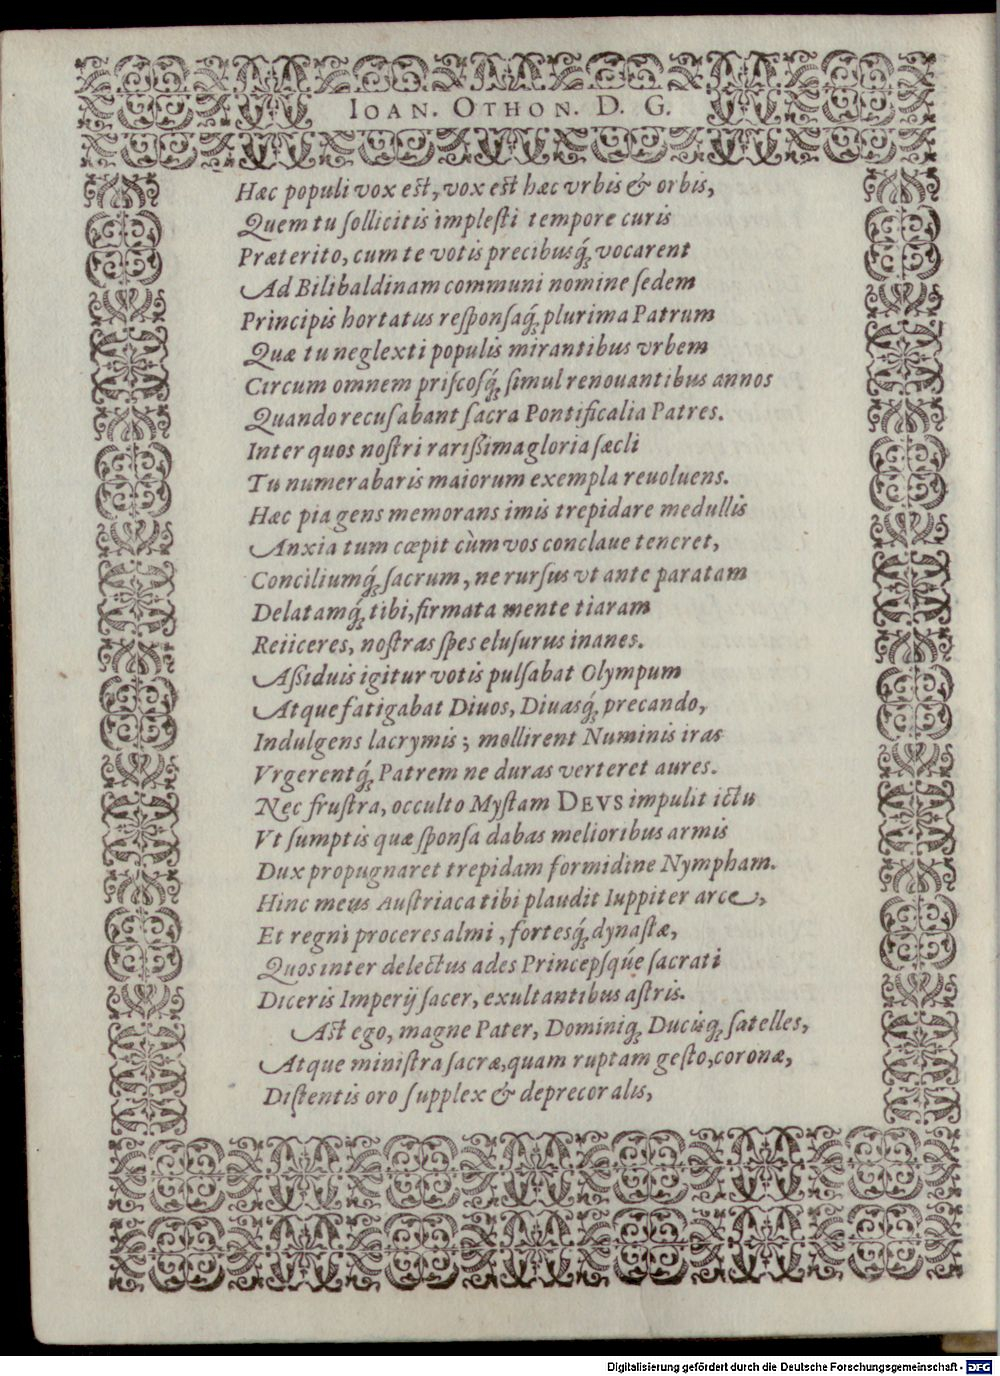 IOAN. OTHON. D. G.
Hæc populi vox est, vox est hæc vrbis & orbis,
Quem tu ſollicitis impleſti tempore curis
Præterito, cum te votis precibusq́; vocarent
Ad Bilibaldinam communi nomine ſedem
Principis hortatus reſponſaq́; plurima Patrum
Quæ tu neglexti populis mirantibus vrbem
Circum omnem priſcoſq́; ſimul renouantibus annos
Quando recuſabant ſacra Pontificalia Patres.
Inter quos noſtri rarißima gloria ſæcli
Tu numerabaris maiorum exempla reuoluens.
Hæc pia gens memorans imis trepidare medullis
Anxia tum cœpit cùm vos conclaue teneret,
Conciliumq́; ſacrum, ne rurſus vt ante paratam
Delatamq́; tibi, firmata mente tiaram
Reiiceres, noſtras ſpes eluſurus inanes.
Aßiduis igitur votis pulſabat Olympum
Atque fatigabat Diuos, Diuasq́; precando,
Indulgens lacrymis; mollirent Numinis iras
Vrgerentq́; Patrem ne duras verteret aures.
Nec fruſtra, occulto Myſtam DEVS impulit ictu
Vt ſumptis quæ ſponſa dabas melioribus armis
Dux propugnaret trepidam formidine Nympham.
Hinc meus Auſtriaca tibi plaudit Iuppiter arce,
Et regni proceres almi, fortesq́; dynaſtæ,
Quos inter delectus ades Princepſque ſacrati
Diceris Imperij ſacer, exultantibus aſtris.
Aſt ego, magne Pater, Dominiq; Ducisq; ſatelles,
Atque miniſtra ſacræ, quam ruptam geſto, coronæ,
Diſtentis oro ſupplex & deprecor alis,
Digitalisierung gefördert durch die Deutsche Forschungsgemeinschaft - DFG